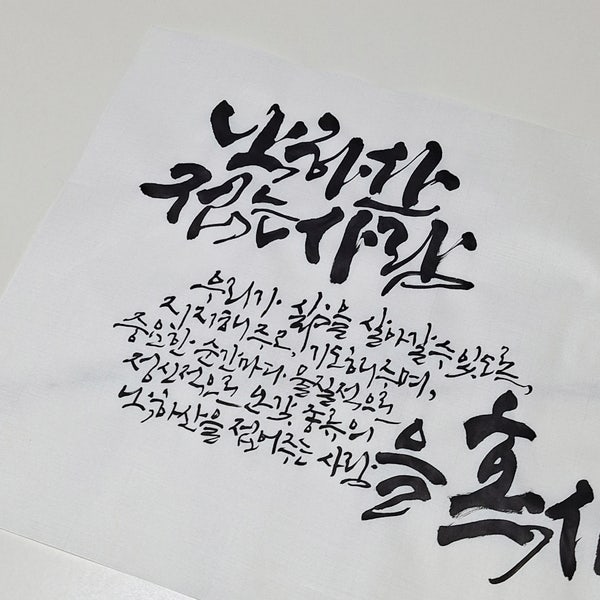 낙하산
접는사람
우리가 삶을 살아갈 수 있도록,
지지해주고, 기도해주며,
중요한 순간마다 물질적으로
정신적으로 온갖 종류의
낙하산을 접어주는 사람
을 혹시